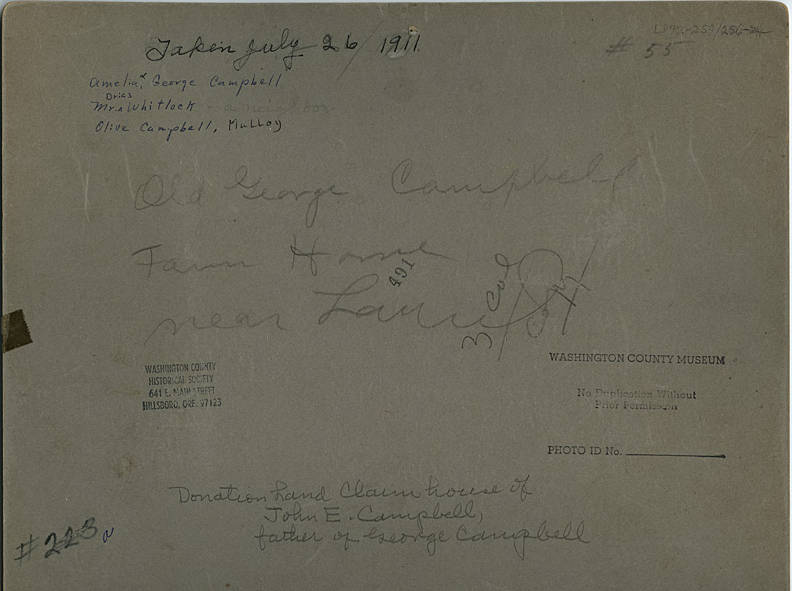 Taken July 26/1911
# 55
Amelia & George Campbell
Mrs Whitlock
Olive Campbell, Mulloy
Old George Campbell
Farm Home
near Laurel
491
3 Col
WASHINGTON COUNTY
HISTORICAL SOCIETY
641 E. MAIN STREET
HILLSBORO, ORE. 97123
WASHINGTON COUNTY MUSEUM
No Duplication Without
Prior Permission
PHOTO ID No.
Donation Land Claim house of
John E. Campbell,
father of George Campbell
#223